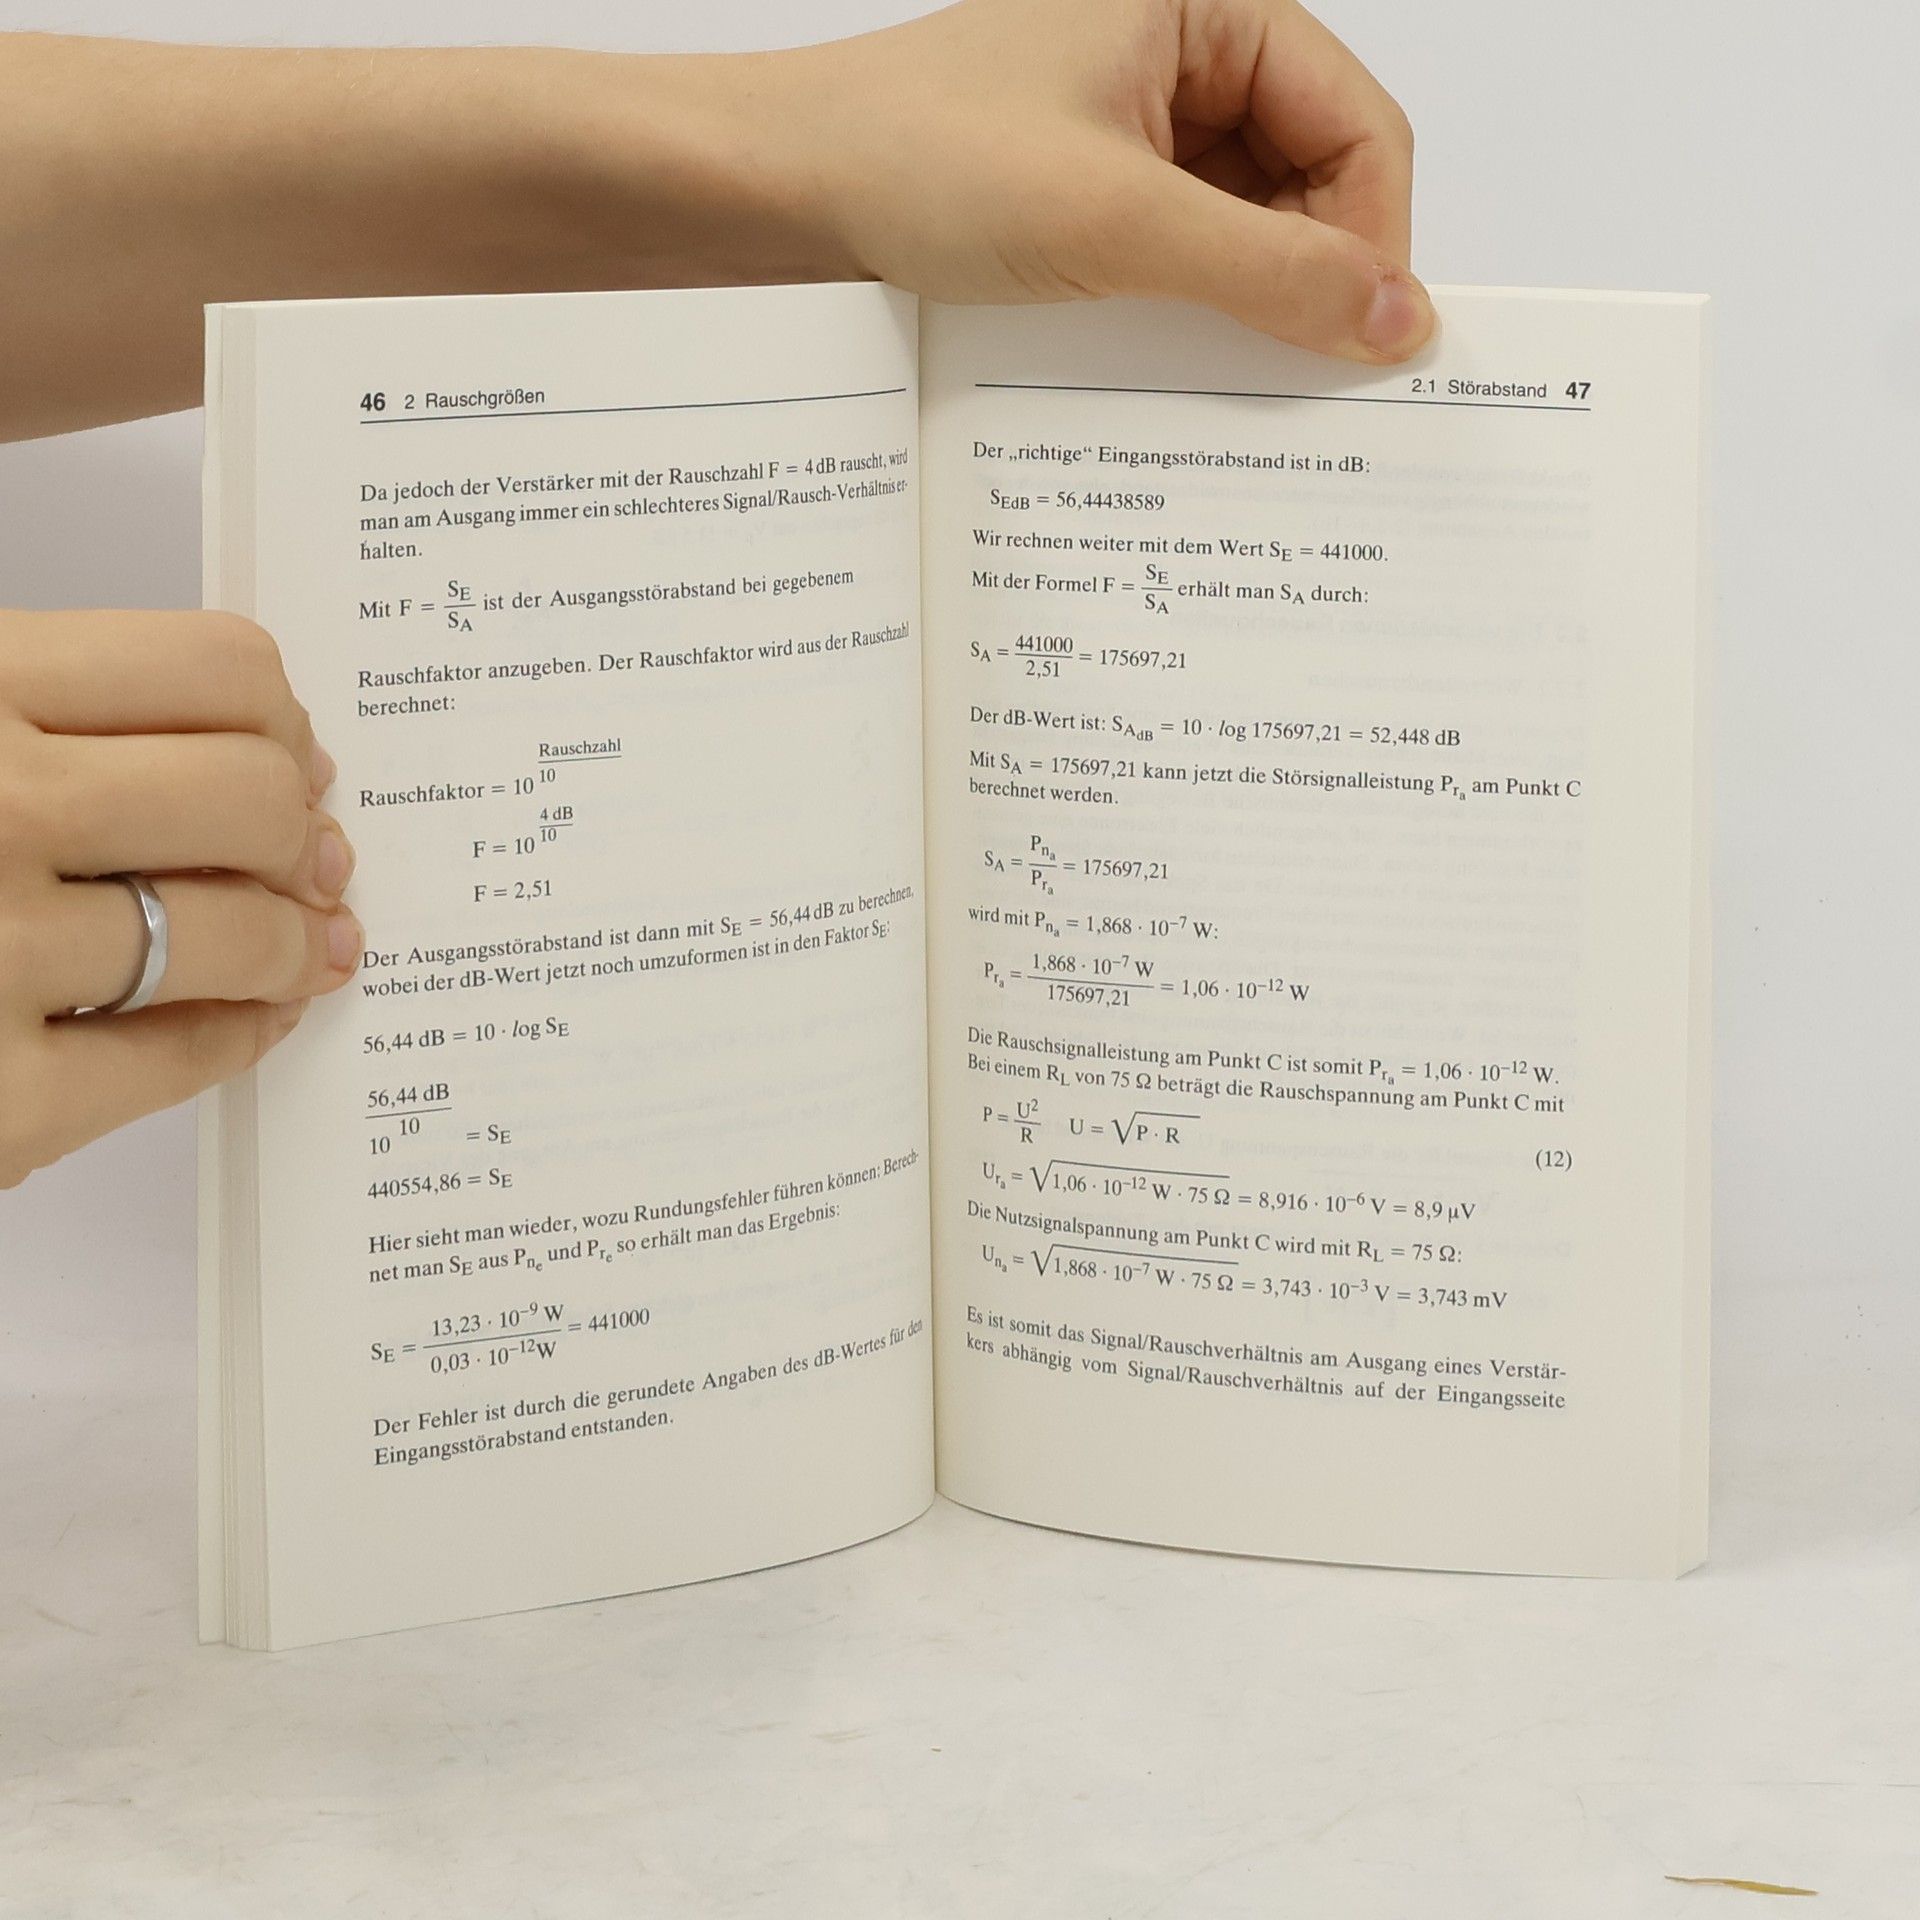 46 2 Rauschgrößen
Da jedoch der Verstärker mit der Rauschzahl F = 4 dB rauscht, wird
man am Ausgang immer ein schlechteres Signal/Rausch-Verhältnis er-
halten.
Mit F = S_E/S_A ist der Ausgangsstörabstand bei gegebenem
Rauschfaktor anzugeben. Der Rauschfaktor wird aus der Rauschzahl
berechnet:
Rauschfaktor = 10^(Rauschzahl/10)
F = 10^(4 dB/10)
F = 2,51
Der Ausgangsstörabstand ist dann mit S_E = 56,44 dB zu berechnen,
wobei der dB-Wert jetzt noch umzuformen ist in den Faktor S_E:
56,44 dB = 10 · log S_E
10^(56,44 dB/10) = S_E
440554,86 = S_E
Hier sieht man wieder, wozu Rundungsfehler führen können: Berech-
net man S_E aus P_n_e und P_r_e so erhält man das Ergebnis:
S_E = 13,23 · 10⁻⁹ W / 0,03 · 10⁻¹² W = 441000
Der Fehler ist durch die gerundete Angaben des dB-Wertes für den
Eingangsstörabstand entstanden.
2.1 Störabstand 47
Der „richtige“ Eingangsstörabstand ist in dB:
S_EdB = 56,44438589
Wir rechnen weiter mit dem Wert S_E = 441000.
Mit der Formel F = S_E/S_A erhält man S_A durch:
S_A = 441000/2,51 = 175697,21
Der dB-Wert ist: S_A_dB = 10 · log 175697,21 = 52,448 dB
Mit S_A = 175697,21 kann jetzt die Störsignalleistung P_r_a am Punkt C
berechnet werden.
S_A = P_n_a/P_r_a = 175697,21
wird mit P_n_a = 1,868 · 10⁻⁷ W:
P_r_a = 1,868 · 10⁻⁷ W / 175697,21 = 1,06 · 10⁻¹² W
Die Rauschsignalleistung am Punkt C ist somit P_r_a = 1,06 · 10⁻¹² W.
Bei einem R_L von 75 Ω beträgt die Rauschspannung am Punkt C mit
P = U²/R U = √(P · R)
(12)
U_r_a = √(1,06 · 10⁻¹² W · 75 Ω) = 8,916 · 10⁻⁶ V = 8,9 µV
Die Nutzsignalspannung am Punkt C wird mit R_L = 75 Ω:
U_n_a = √(1,868 · 10⁻⁷ W · 75 Ω) = 3,743 · 10⁻³ V = 3,743 mV
Es ist somit das Signal/Rauschverhältnis am Ausgang eines Verstär-
kers abhängig vom Signal/Rauschverhältnis auf der Eingangsseite